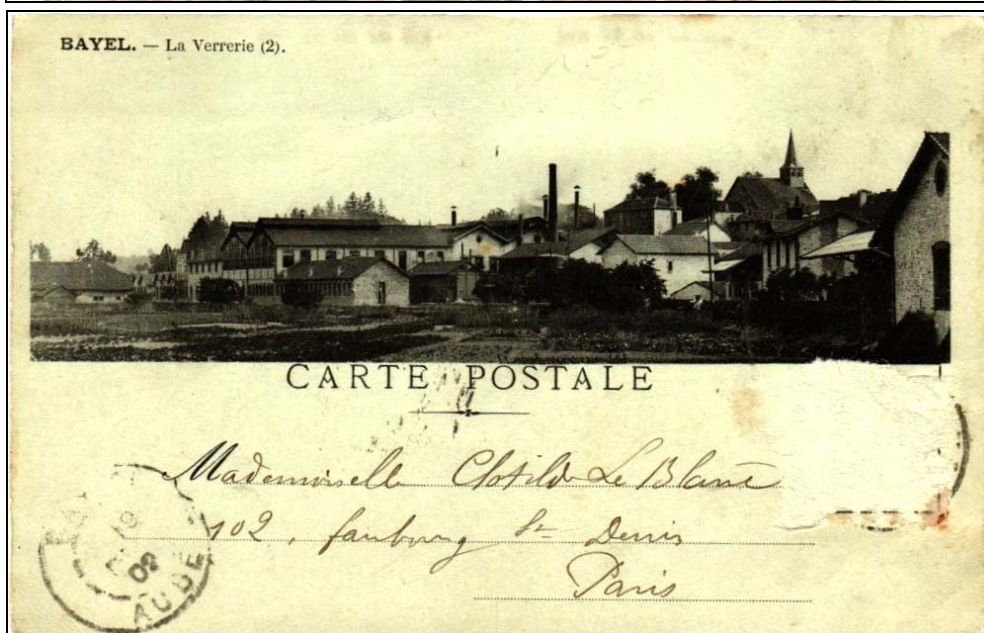 BAYEL. — La Verrerie (2).
CARTE POSTALE
Mademoiselle Clotilde Le Blanc
102, faubourg St Denis
Paris
AUBE